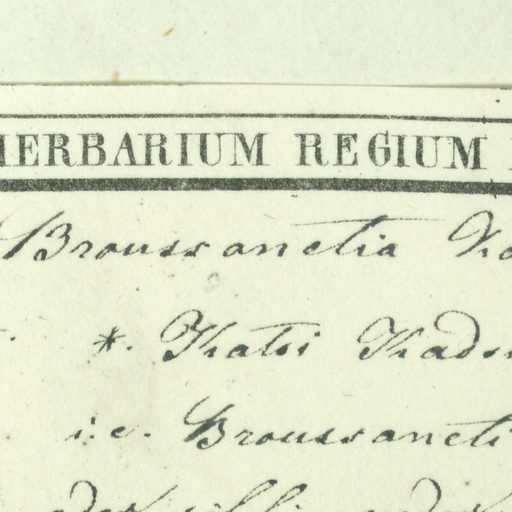 HERBARIUM REGIUM
Broussonetia Ka
*. Katsi Kads
i.e. Broussoneti